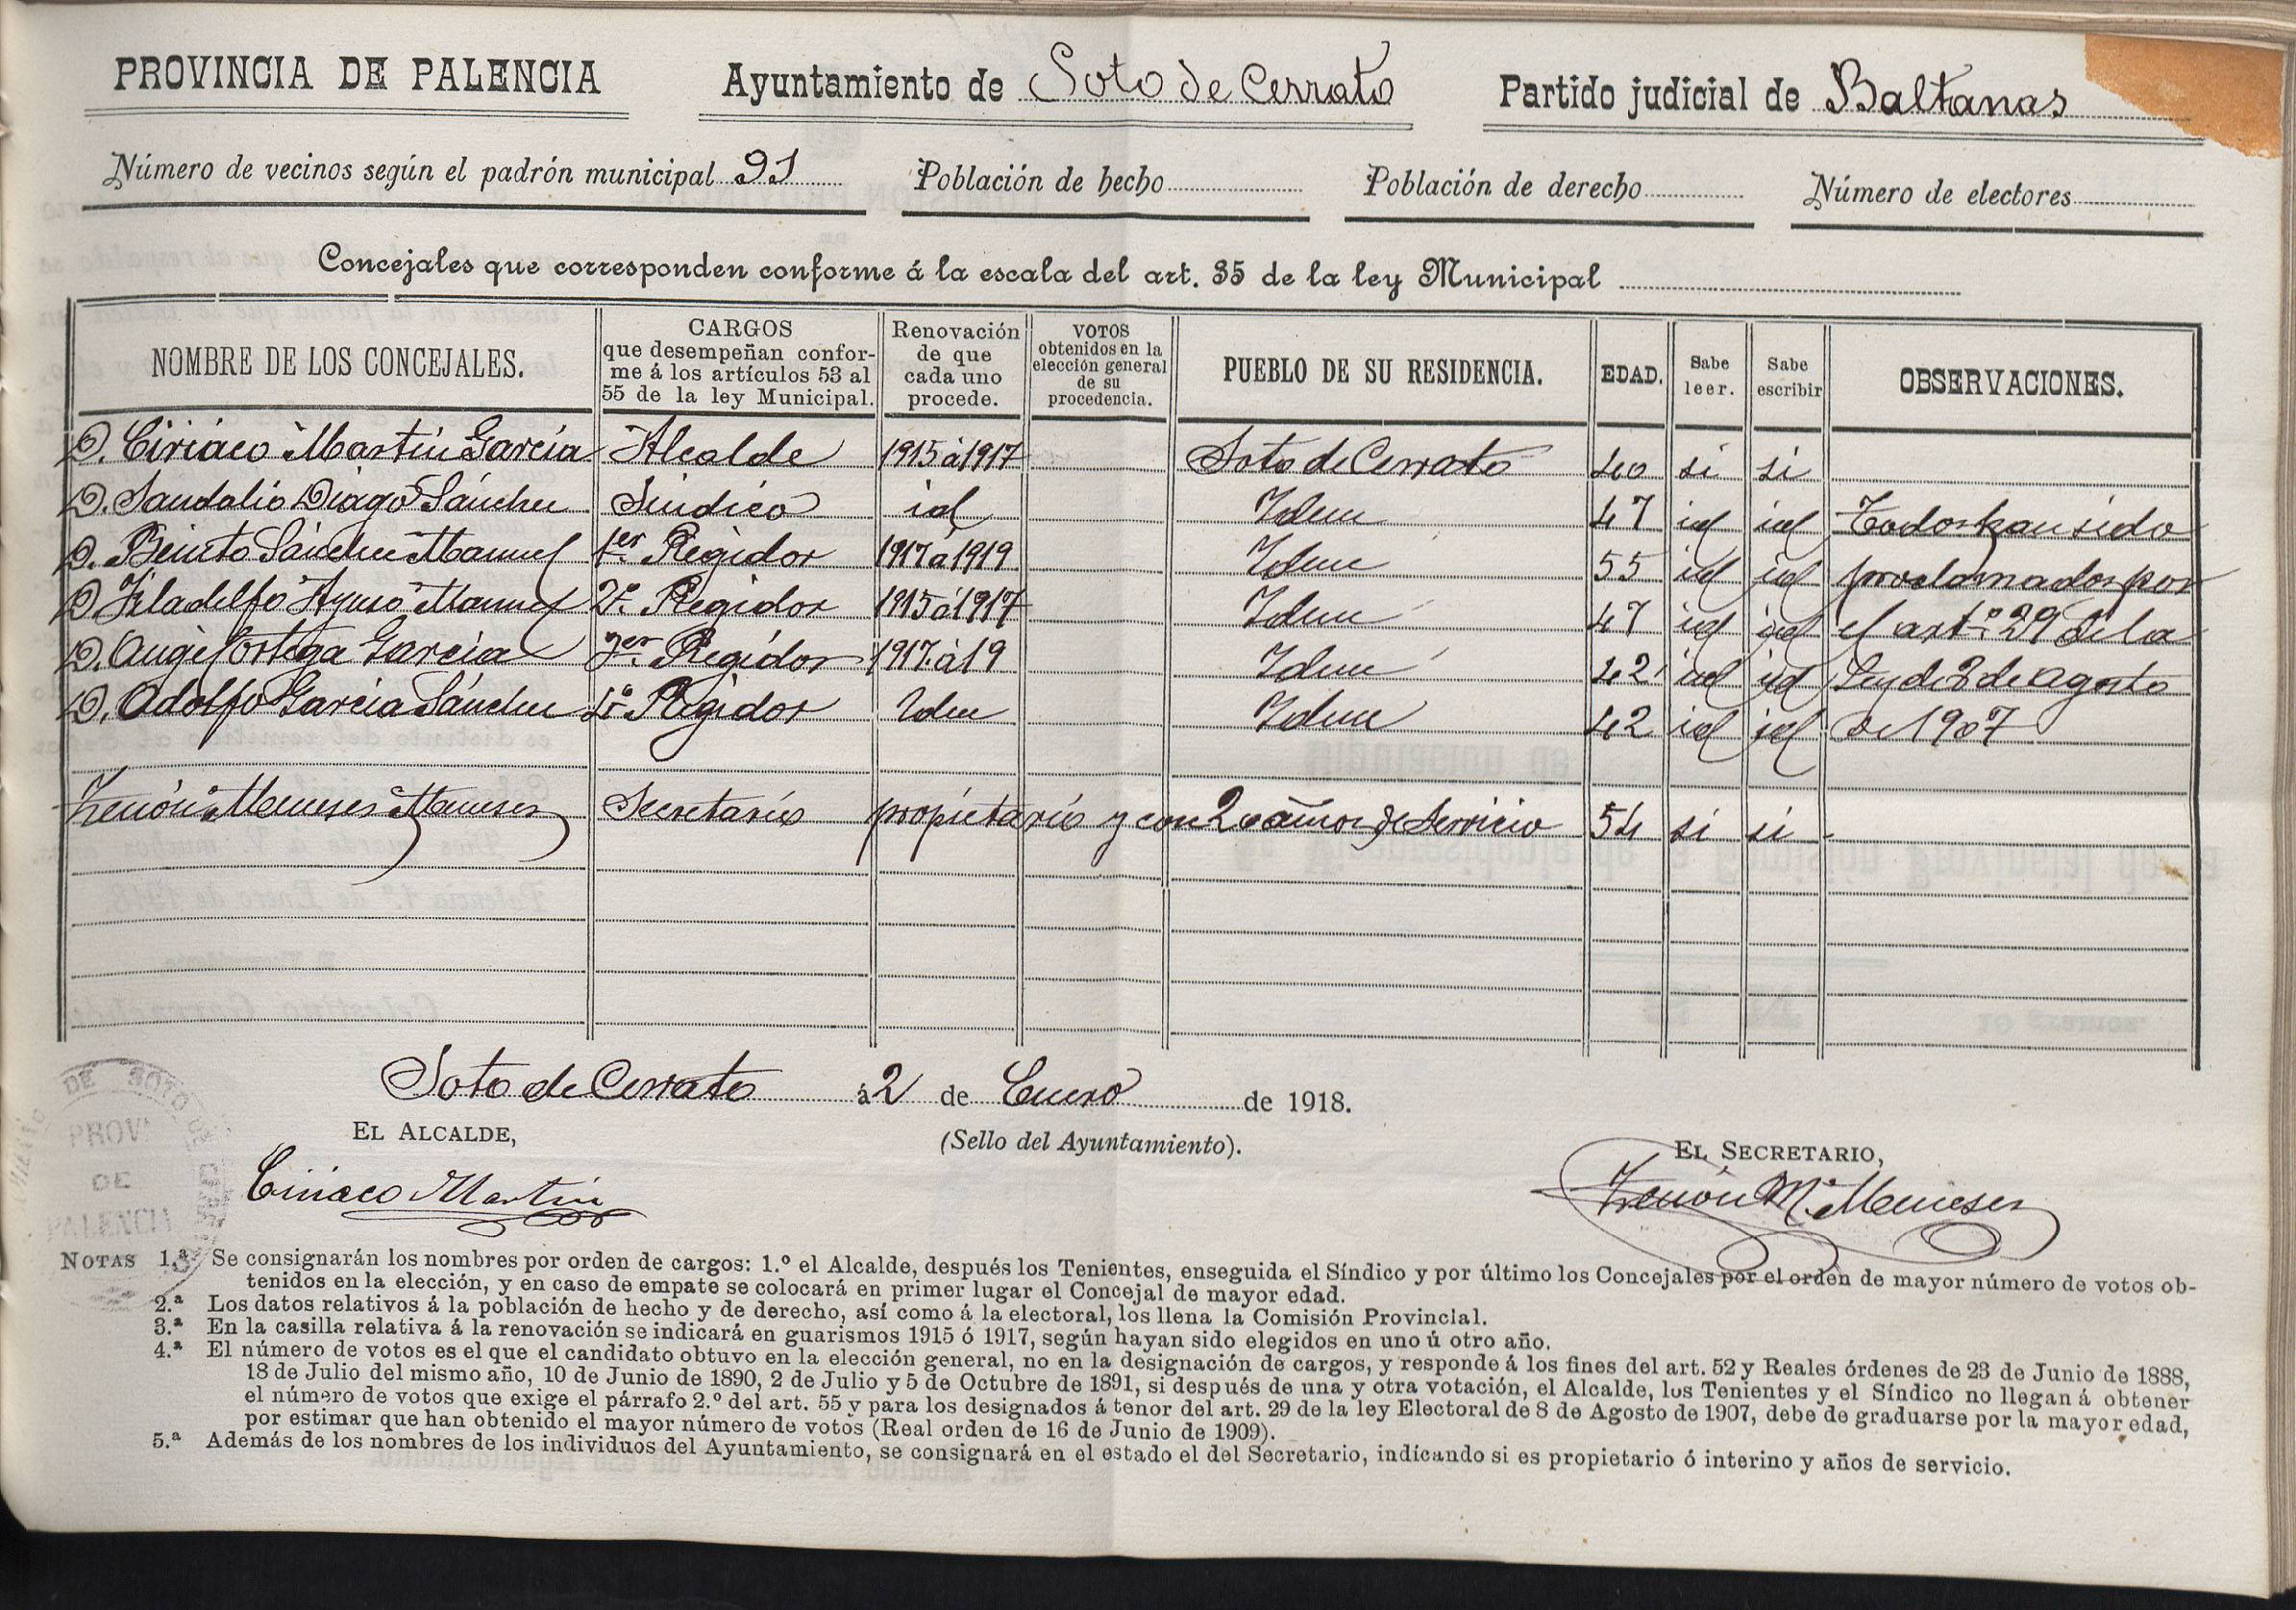 PROVINCIA DE PALENCIA Ayuntamiento de Soto de Cerrato Partido judicial de Baltanas
Número de vecinos según el padrón municipal 91 Población de hecho Población de derecho Número de electores
Concejales que corresponden conforme á la escala del art. 35 de la ley Municipal
NOMBRE DE LOS CONCEJALES. CARGOS que desempeñan confor- me á los artículos 53 al 55 de la ley Municipal. Renovación de que cada uno procede. VOTOS obtenidos en la elección general de su procedencia. PUEBLO DE SU RESIDENCIA. EDAD. Sabe leer. Sabe escribir OBSERVACIONES.
D. Ciriaco Martin Garcia Alcalde 1915 á 1917 Soto de Cerrato 40 si si
D. Sandalio Diago Sánchez Sindico id Idem 47 id id Todos han sido
D. Benito Sánchez Manuel 1er Regidor 1917 á 1919 Idem 55 id id proclamados por
D. Filadelfo Ayuso Manuel 2º Regidor 1915 á 1917 Idem 47 id id el artº 29 de la
D. Angel Ortega Garcia 3er Regidor 1917 á 19 Idem 42 id id Ley de 8 de Agosto
D. Adolfo Garcia Sánchez 4º Regidor Idem Idem 42 id id de 1907
Zenón Meneses Meneses Secretario propietario y con 20 años de servicio 54 si si
Soto de Cerrato á 2 de Enero de 1918.
EL ALCALDE, (Sello del Ayuntamiento). EL SECRETARIO,
Ciriaco Martin Zenón M. Meneses
DE SOTO DE
PROV
DE
PALENCIA
NOTAS 1.ª Se consignarán los nombres por orden de cargos: 1.º el Alcalde, después los Tenientes, enseguida el Síndico y por último los Concejales por el orden de mayor número de votos ob-
tenidos en la elección, y en caso de empate se colocará en primer lugar el Concejal de mayor edad.
2.ª Los datos relativos á la población de hecho y de derecho, así como á la electoral, los llena la Comisión Provincial.
3.ª En la casilla relativa á la renovación se indicará en guarismos 1915 ó 1917, según hayan sido elegidos en uno ú otro año.
4.ª El número de votos es el que el candidato obtuvo en la elección general, no en la designación de cargos, y responde á los fines del art. 52 y Reales órdenes de 23 de Junio de 1888,
18 de Julio del mismo año, 10 de Junio de 1890, 2 de Julio y 5 de Octubre de 1891, si después de una y otra votación, el Alcalde, los Tenientes y el Síndico no llegan á obtener
el número de votos que exige el párrafo 2.º del art. 55 y para los designados á tenor del art. 29 de la ley Electoral de 8 de Agosto de 1907, debe de graduarse por la mayor edad,
por estimar que han obtenido el mayor número de votos (Real orden de 16 de Junio de 1909).
5.ª Además de los nombres de los individuos del Ayuntamiento, se consignará en el estado el del Secretario, indicando si es propietario ó interino y años de servicio.